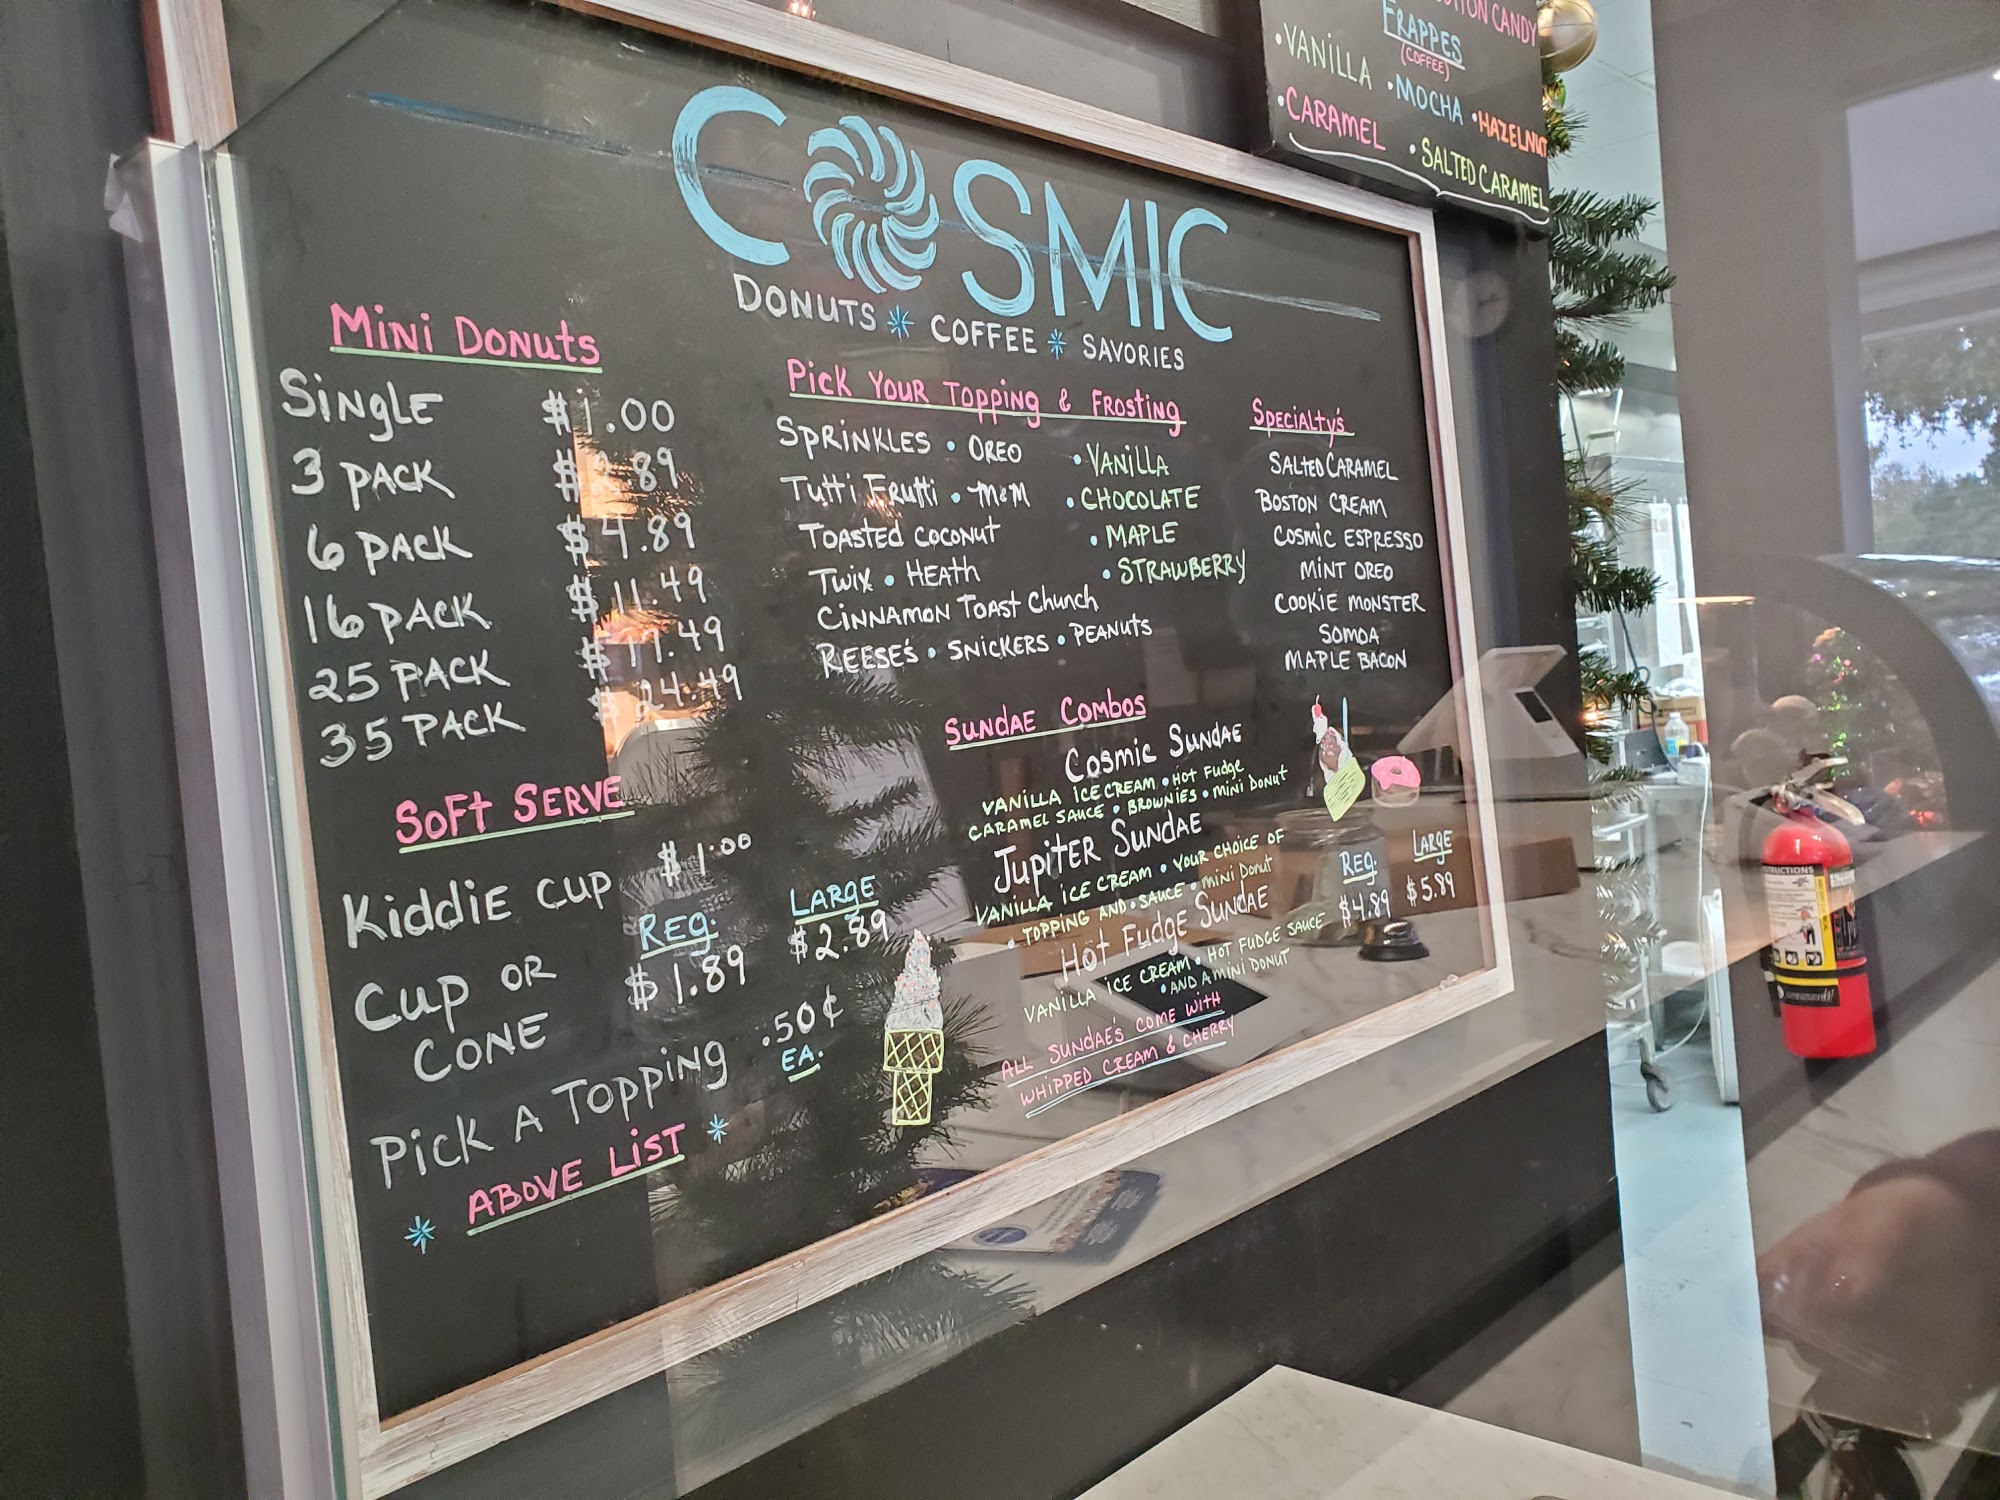 COSMIC
DONUTS * COFFEE * SAVORIES
MiNi DONUTS
SiNGLE $1.00
3 PACK .89
6 PACK $4.89
16 PACK $11.49
25 PACK .49
35 PACK $24.49
SOFT SERVE
KiddiE CUP $1.00
REG. LARGE
CUP OR CONE $1.89 $2.89
PiCK A TOPPiNG .50¢ EA.
* ABOVE LiST *
PiCK YOUR TOPPiNG & FROSTiNG
SPRiNKLES • OREO
TUTTi FRUTTi • M&M
TOASTED COCONUT
TWiX • HEATH
CiNNAMON TOAST CHUNCH
REESE'S • SNiCKERS • PEANUTS
• VANiLLA
• CHOCOLATE
• MAPLE
• STRAWBERRY
SPECiALTY'S
SALTED CARAMEL
BOSTON CREAM
COSMiC ESPRESSO
MiNT OREO
COOKiE MONSTER
SOMOA
MAPLE BACON
SUNDAE COMBOS
COSMiC SUNDAE
VANiLLA iCE CREAM • HOT FUDGE
CARAMEL SAUCE • BROWNiES • MiNi DONUT
JUPiTER SUNDAE
VANiLLA iCE CREAM • YOUR CHOiCE OF
• TOPPiNG AND • SAUCE • MiNi DONUT
HOT FUDGE SUNDAE
VANiLLA iCE CREAM • HOT FUDGE SAUCE
• AND A MiNi DONUT
REG. LARGE
$4.89 $5.89
ALL SUNDAE'S COME WiTH
WHiPPED CREAM & CHERRY
COTTON CANDY
FRAPPES
(COFFEE)
• VANiLLA
• MOCHA
• HAZELNUT
• CARAMEL
• SALTED CARAMEL
INSTRUCTIONS